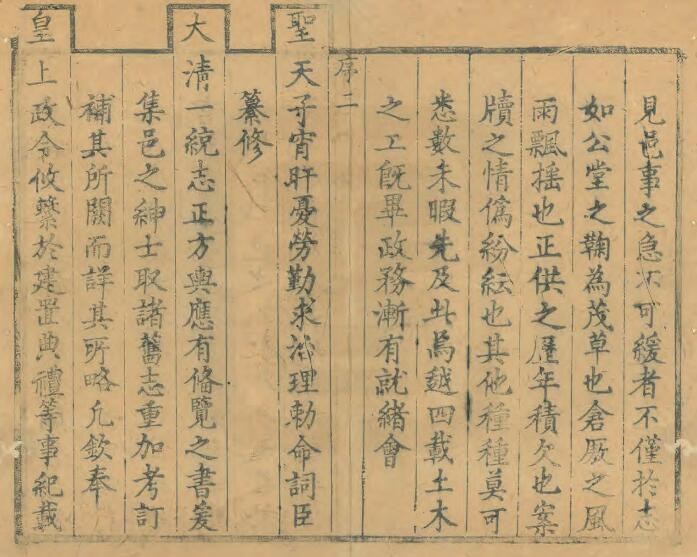 見邑事之急不可緩者不僅於志
如公堂之鞠為茂草也倉厫之風
雨飄搖也正供之歷年積欠也案
牘之情偽紛紜也其他種種莫可
悉數未暇先及此焉越四載土木
之工既畢政務漸有就緒會
序二
聖天子宵旰憂勞勤求治理勅命詞臣
纂修
大清一統志正方輿應有俻覽之書爰
集邑之紳士取諸舊志重加考訂
補其所闕而詳其所略凢欽奉
皇上政令攸繫於建置典禮等事紀載